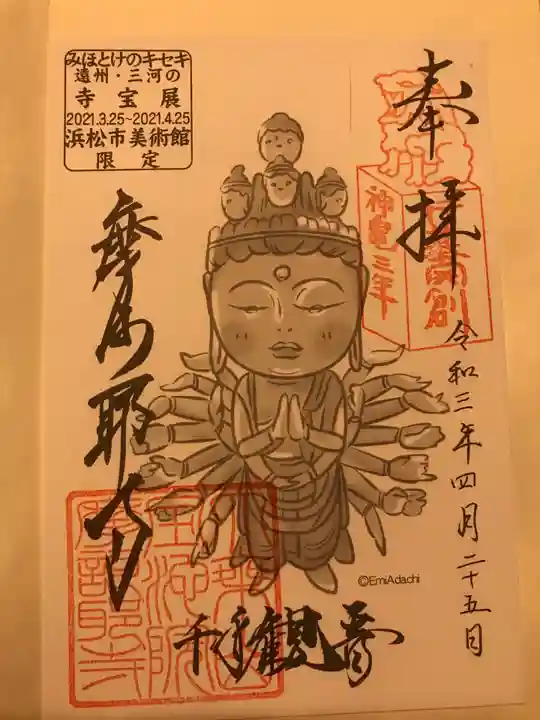 みほとけのキセキ
遠州・三河の
寺宝展
2021.3.25~2021.4.25
浜松市美術館
限定
奉拝
神亀三年
令和三年四月二十五日
摩訶耶寺
千手観音
©EmiAdachi